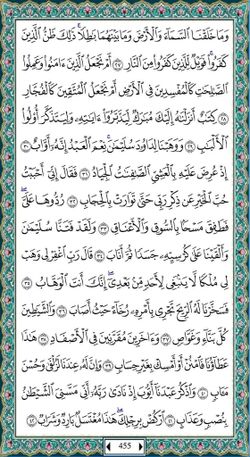 وَمَا خَلَقْنَا ٱلسَّمَآءَ وَٱلْأَرْضَ وَمَا بَيْنَهُمَا بَٰطِلًا ۚ ذَٰلِكَ ظَنُّ ٱلَّذِينَ
كَفَرُوا۟ ۚ فَوَيْلٌ لِّلَّذِينَ كَفَرُوا۟ مِنَ ٱلنَّارِ ٢٧ أَمْ نَجْعَلُ ٱلَّذِينَ ءَامَنُوا۟ وَعَمِلُوا۟
ٱلصَّٰلِحَٰتِ كَٱلْمُفْسِدِينَ فِى ٱلْأَرْضِ أَمْ نَجْعَلُ ٱلْمُتَّقِينَ كَٱلْفُجَّارِ
٢٨ كِتَٰبٌ أَنزَلْنَٰهُ إِلَيْكَ مُبَٰرَكٌ لِّيَدَّبَّرُوٓا۟ ءَايَٰتِهِۦ وَلِيَتَذَكَّرَ أُو۟لُوا۟
ٱلْأَلْبَٰبِ ٢٩ وَوَهَبْنَا لِدَاوُۥدَ سُلَيْمَٰنَ ۚ نِعْمَ ٱلْعَبْدُ ۖ إِنَّهُۥٓ أَوَّابٌ ٣٠
إِذْ عُرِضَ عَلَيْهِ بِٱلْعَشِىِّ ٱلصَّٰفِنَٰتُ ٱلْجِيَادُ ٣١ فَقَالَ إِنِّىٓ أَحْبَبْتُ
حُبَّ ٱلْخَيْرِ عَن ذِكْرِ رَبِّى حَتَّىٰ تَوَارَتْ بِٱلْحِجَابِ ٣٢ رُدُّوهَا عَلَىَّ ۖ
فَطَفِقَ مَسْحًۢا بِٱلسُّوقِ وَٱلْأَعْنَاقِ ٣٣ وَلَقَدْ فَتَنَّا سُلَيْمَٰنَ
وَأَلْقَيْنَا عَلَىٰ كُرْسِيِّهِۦ جَسَدًا ثُمَّ أَنَابَ ٣٤ قَالَ رَبِّ ٱغْفِرْ لِى وَهَبْ
لِى مُلْكًا لَّا يَنۢبَغِى لِأَحَدٍ مِّنۢ بَعْدِىٓ ۖ إِنَّكَ أَنتَ ٱلْوَهَّابُ ٣٥
فَسَخَّرْنَا لَهُ ٱلرِّيحَ تَجْرِى بِأَمْرِهِۦ رُخَآءً حَيْثُ أَصَابَ ٣٦ وَٱلشَّيَٰطِينَ
كُلَّ بَنَّآءٍ وَغَوَّاصٍ ٣٧ وَءَاخَرِينَ مُقَرَّنِينَ فِى ٱلْأَصْفَادِ ٣٨ هَٰذَا
عَطَآؤُنَا فَٱمْنُنْ أَوْ أَمْسِكْ بِغَيْرِ حِسَابٍ ٣٩ وَإِنَّ لَهُۥ عِندَنَا لَزُلْفَىٰ وَحُسْنَ
مَـَٔابٍ ٤٠ وَٱذْكُرْ عَبْدَنَآ أَيُّوبَ إِذْ نَادَىٰ رَبَّهُۥٓ أَنِّى مَسَّنِىَ ٱلشَّيْطَٰنُ
بِنُصْبٍ وَعَذَابٍ ٤١ ٱرْكُضْ بِرِجْلِكَ ۖ هَٰذَا مُغْتَسَلٌۢ بَارِدٌ وَشَرَابٌ ٤٢
455